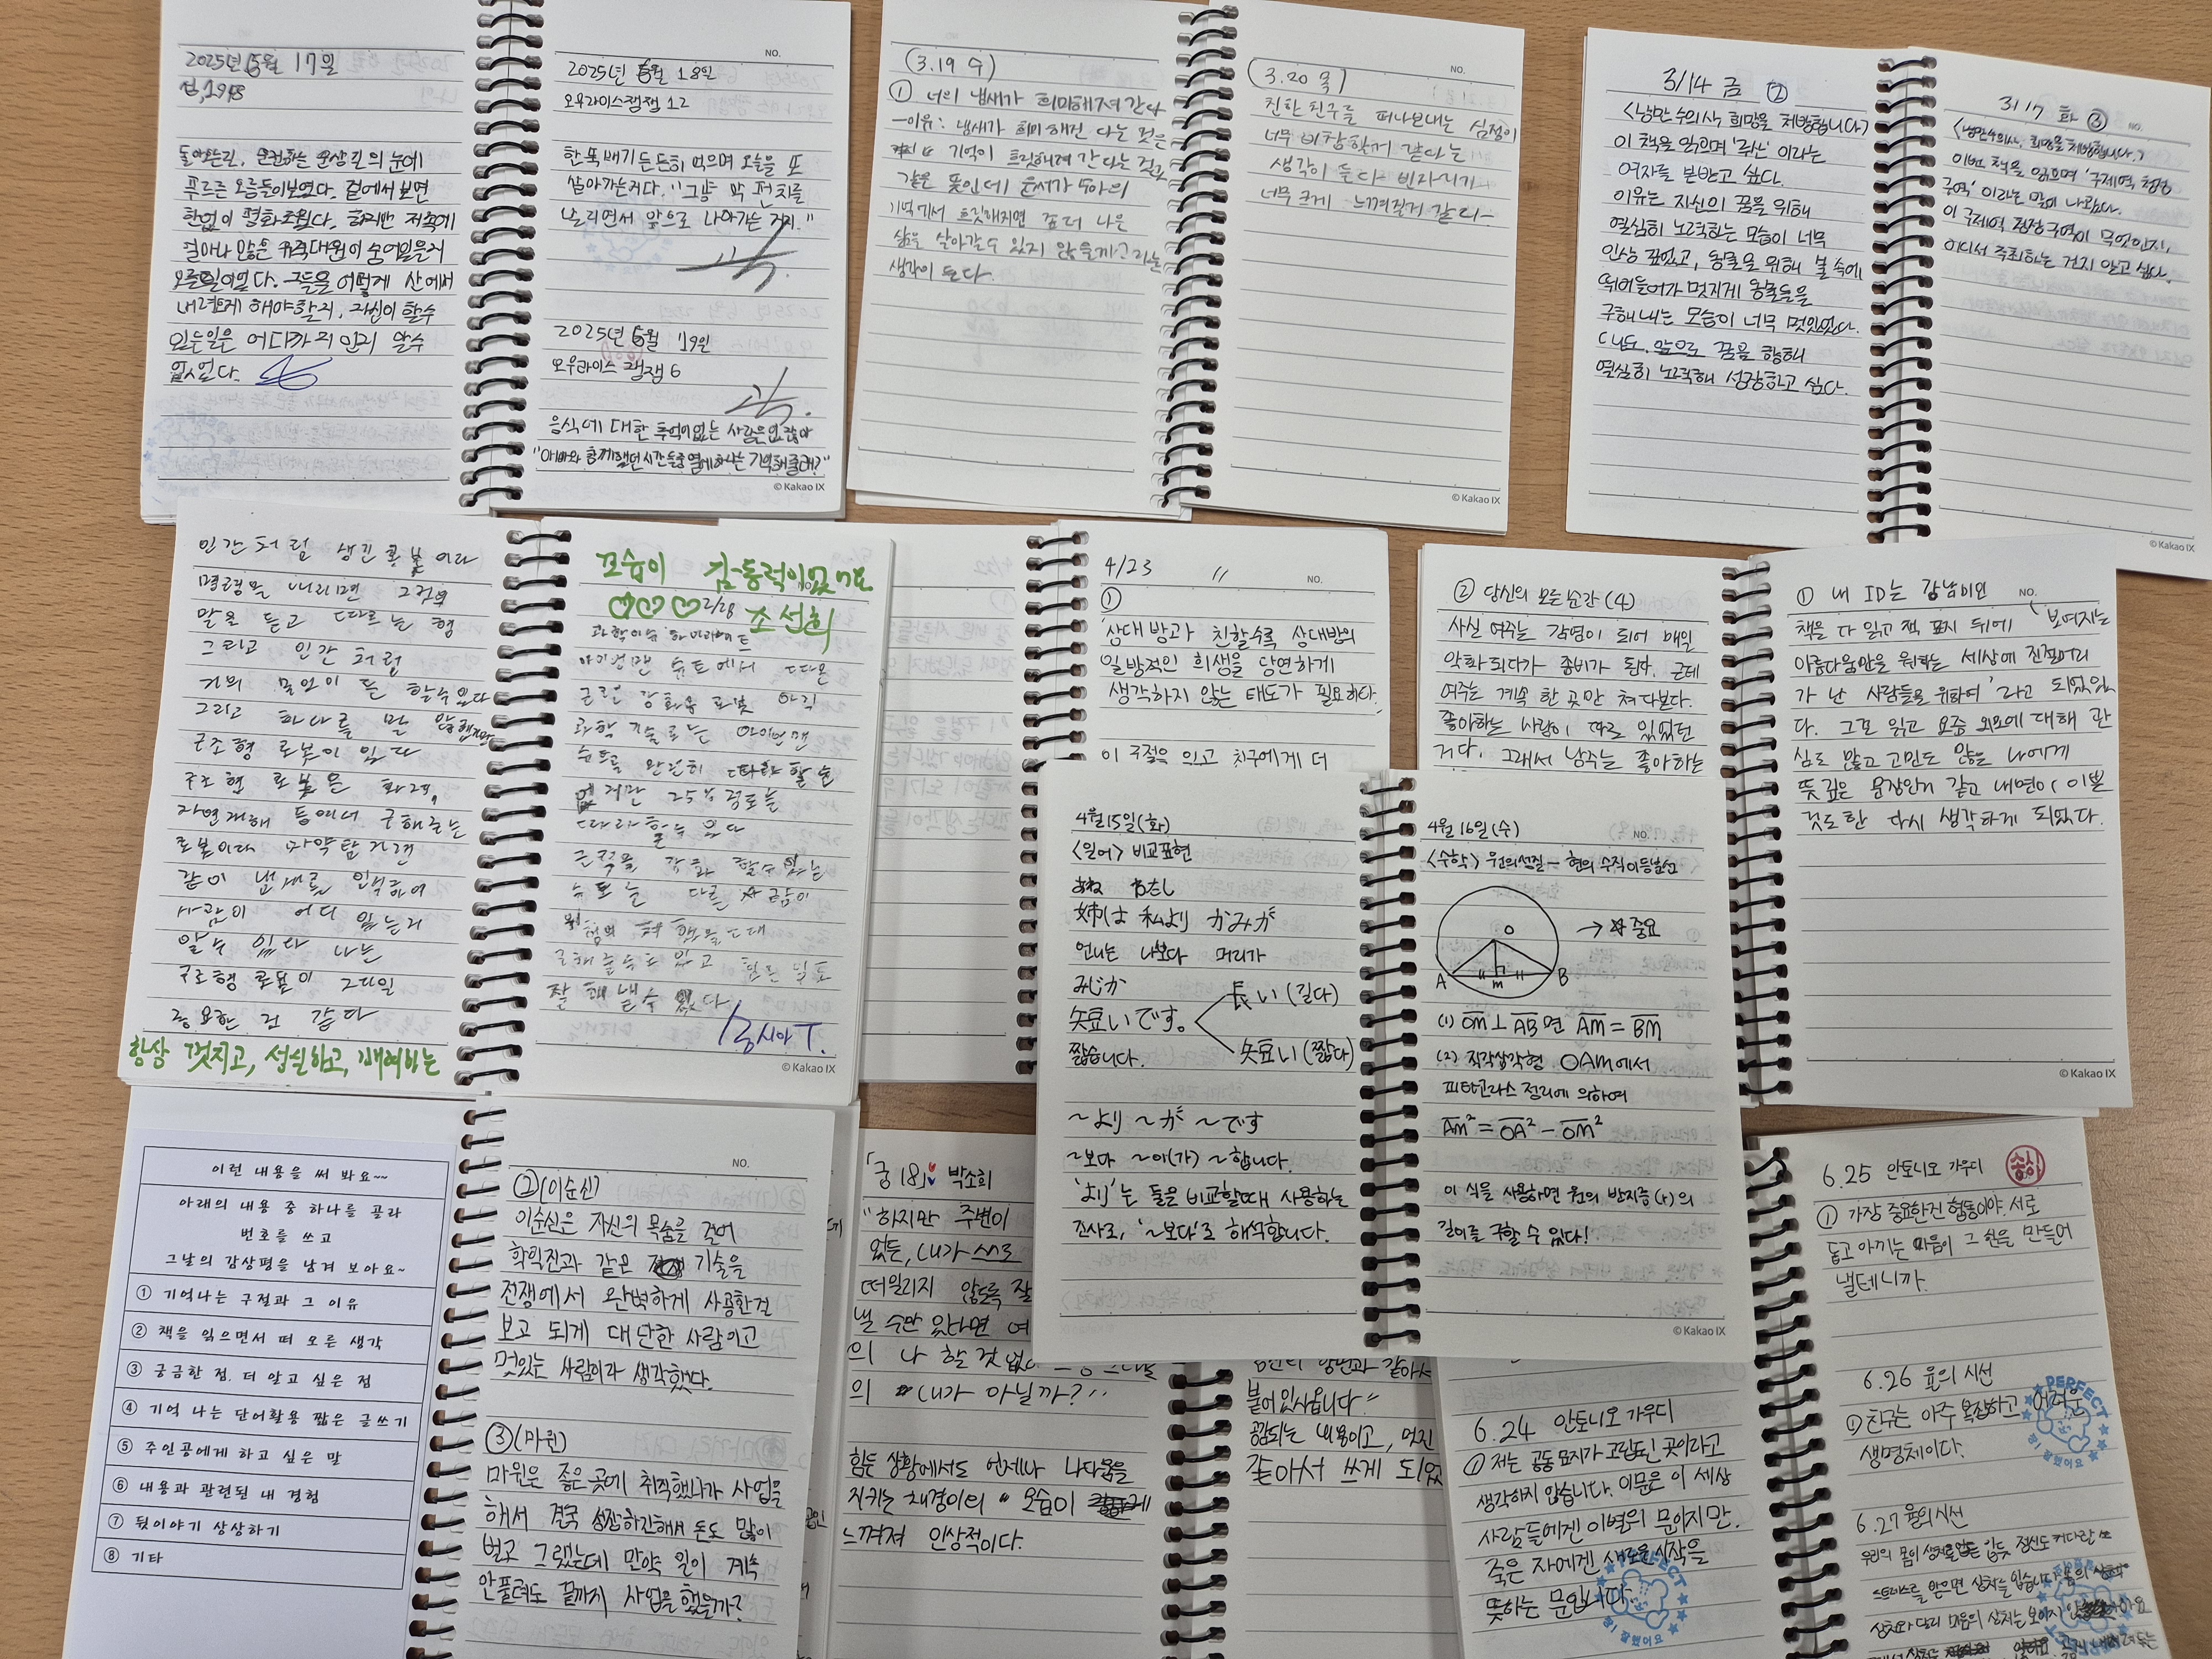 2025년 6월 17일
섬, 1948
돌아오는길, 운전하는 문상길의 눈에
푸르른 오름들이보였다. 겉에서 보면
한없이 평화로웠다. 하지만 저속에
얼마나 많은 무장대원이 숨어있을지
모를일이었다. 그들을 어떻게 산에서
내려오게 해야할지, 자신이 할수
있는일은 어디까지 인지 알수
없었다.
NO.
2025년 6월 18일
오무라이스 잼잼 12
한뚝배기 든든히 먹으며 오늘을 또
살아가는거다. "그냥 막 펀치를
날리면서 앞으로 나아가는 거지."
2025년 6월 19일
오무라이스 잼잼 6
음식에 대한 추억이없는 사람은없잖아
"아빠와 함께했던시간들중 몇개하나는 기억해줄래?"
© Kakao IX
(3.19 수)
① 너의 냄새가 희미해져 간다
-이유: 냄새가 희미해진 다는 것은
기억이 흐릿해져 간다는 것과
같은 뜻인데 은서가 누아의
기억에서 흐릿해지면 좀더 나은
삶을 살아갈수 있지 않을까?라는
생각이 든다.
NO.
(3.20 목)
친한 친구를 떠나보내는 심정이
너무 비참할꺼 같다는
생각이 든다 빈자리가
너무 크게 느껴질거 같다-
© Kakao IX
3/14 금 ②
<낭만 수의사, 희망을 처방합니다>
이 책을 읽으며 '루산' 이라는
여자를 본받고 싶다.
이유는, 자신의 꿈을 위해
열심히 노력하는 모습이 너무
인상 깊었고, 동물을 위해 불 속에
뛰어들어가 멋지게 동물들을
구해내는 모습이 너무 멋있었다.
나도 앞으로 꿈을 향해
열심히 노력해 성장하고 싶다.
3/17 화 ③
NO.
<낭만수의사, 희망을 처방합니다.>
이번 책을 읽으며 '구제역 청정
구역' 이라는 말이 나왔다.
이 구제역 청정구역이 무엇인지,
어디서 주최하는 건지 알고 싶다.
© Kakao IX
인간처럼 생긴 로봇이라
명령을 내리면 그사람의
말을 듣고 따르는 형
그리고 인간 처럼
거의 모든이 든 할수있다
그리고 하나를 말 안했지만
구조형 로봇이 있다
구조형 로봇은 화재,
자연재해 등에서 구해주는
로봇이다 마약탐지견
같이 냄새를 인식하여
사람이 어디 있는지
알수 있다 나는
구조형 로봇이 그나마 제일
중요한 것 같다
항상 멋지고, 성실하고, 배려하는
모습이 감동적이었어요
♡♡♡ 2/28 조선희
과학이슈 하이라이트
아이언맨 슈트에서 따온
근력 강화용 로봇 아직
과학기술로는 아이언맨
슈트를 완전히 따라 할순
없지만 25% 정도는
따라할수 있다
근력을 강화 할수 있는
슈트는 다른 사람이
위험에 처 했을 때
구해줄수도 있고 힘든 일도
잘 해낼수 있다
홍시아 T.
© Kakao IX
4/23 〃
NO.
①
"상대방과 친할수록 상대방의
일방적인 희생을 당연하게
생각하지 않는 태도가 필요하다."
이 구절을 읽고 친구에게 더
② 당신의 모든 순간 (4)
사실 여주는 감염이 되어 매일
악화되다가 좀비가 된다. 근데
여주는 계속 한 곳만 쳐다본다.
좋아하는 사람이 따로 있었던
거다. 그래서 남주는 좋아하는
① 내 ID는 강남미인
NO.
책을 다 읽고 책 표지 뒤에 '보여지는
아름다움만을 원하는 세상에 진절머리
가 난 사람들을 위하여' 라고 되어있었
다. 그걸 읽고 요즘 외모에 대해 관
심도 많고 고민도 많은 나에게
뜻깊은 문장인거 같고 내면이 이쁜
것도한 다시 생각하게 되었다.
© Kakao IX
4월 15일(화)
<일어> 비교표현
あね わたし
姉は 私より かみが
언니는 나보다 머리가
みじか
短いです。
짧습니다.
長い (길다)
短い (짧다)
~より ~が ~です
~보다 ~이(가) ~합니다.
'より'는 둘을 비교할때 사용하는
조사로, '~보다'로 해석합니다.
4월 16일(수)
NO.
<수학> 원의성질 - 현의 수직이등분선
O
→ ☆ 중요
A
M
B
(1) OM⊥AB 면 AM = BM
(2) 직각삼각형 OAM에서
피타고라스 정리에 의하여
AM² = OA² - OM²
이 식을 사용하면 원의 반지름(r)의
길이를 구할 수 있다!
© Kakao IX
이런 내용을 써 봐요~~
아래의 내용 중 하나를 골라
번호를 쓰고
그날의 감상평을 남겨 보아요~
① 기억나는 구절과 그 이유
② 책을 읽으면서 떠 오른 생각
③ 궁금한 점. 더 알고 싶은 점
④ 기억 나는 단어활용 짧은 글쓰기
⑤ 주인공에게 하고 싶은 말
⑥ 내용과 관련된 내 경험
⑦ 뒷이야기 상상하기
⑧ 기타
NO.
② (이순신)
이순신은 자신의 목숨을 걸어
학익진과 같은 기술을
전쟁에서 완벽하게 사용한걸
보고 되게 대단한 사람이고
멋있는 사람이라 생각했다.
③ (마윈)
마윈은 좋은곳에 취직했다가 사업을
해서 결국 성장하긴해서 돈도 많이
벌고 그랬는데 만약 일이 계속
안풀려도 끝까지 사업을 했을까?
「궁 18」 박소희
"하지만 주변이
있든, 내가 스스로
떠밀리지 않도록 잘
낼 수만 있다면 여
의 나 할 것 없
의 내가 아닐까?"
힘든 상황에서도 언제나 나다움을
지키는 채경이의 모습이
느껴져 인상적이다.
붙어있사옵니다"
공감되는 내용이고, 멋진
같아서 쓰게 되었
6.24 안토니오 가우디
① 저는 공동묘지가 고립된 곳이라고
생각하지 않습니다. 이문은 이 세상
사람들에겐 이별의 문이지만.
죽은 자에겐 새로운 시작을
뜻하는 문입니다.
PERFECT
참! 잘했어요
6.25 안토니오 가우디
① 가장 중요한건 협동이야. 서로
돕고 아끼는 마음이 그 힘을 만들어
낼테니까.
6.26 율의 시선
① 친구는 아주 복잡하고 어려운
생명체이다.
PERFECT
참! 잘했어요
6.27 율의시선
우리의 몸이 상처를입듯 정신도 커다란 쓰
스트레스를 받으면 상처를 입습니다. 몸의 상처
상처와 달리 마음의 상처는 보이지